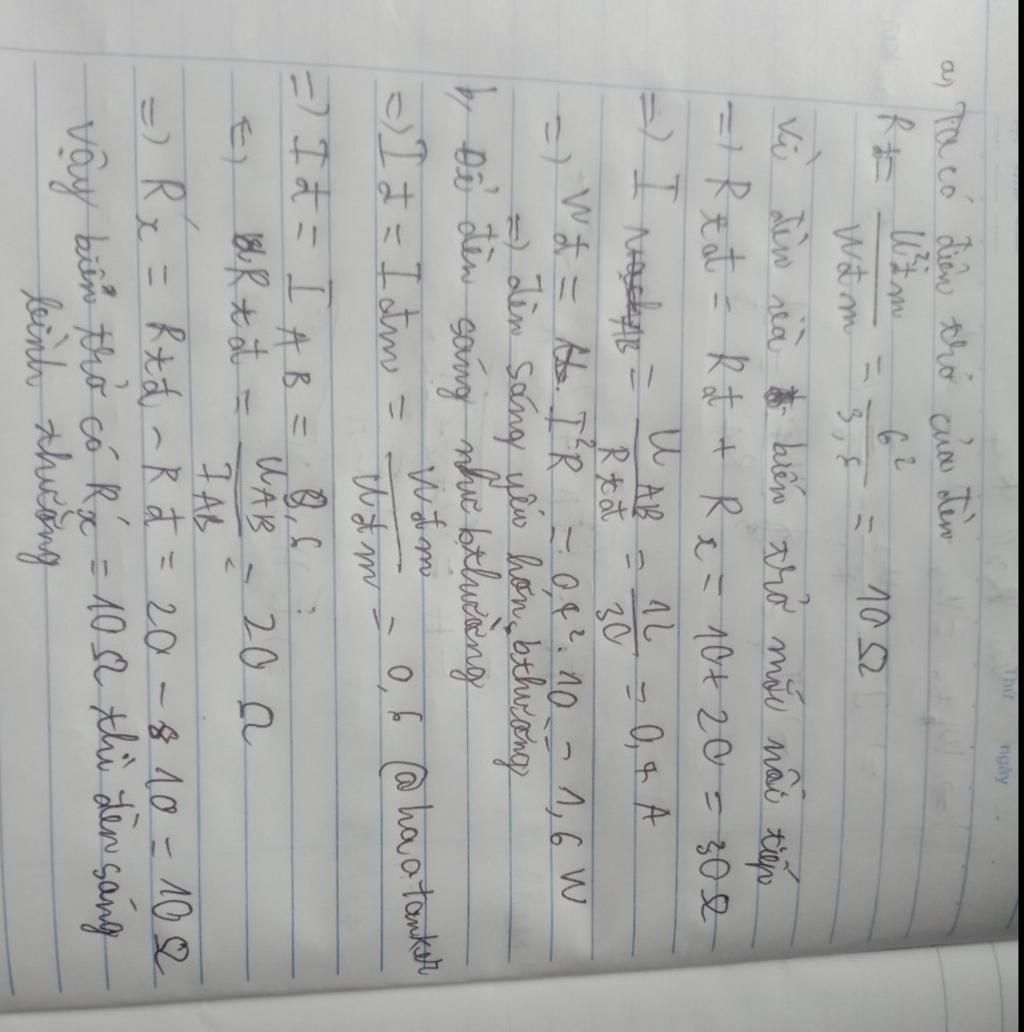 Thứ
ngày
a, Ta có điện trở của đèn
Rđ = U²đm / Wđm = 6² / 3,6 = 10Ω
Vì đèn và biến trở mắc nối tiếp
=) Rtđ = Rđ + Rx = 10 + 20 = 30Ω
=) I AB = UAB / Rtđ = 12 / 30 = 0,4 A
=) Wđ = I²R = 0,4². 10 = 1,6 W
=) đèn sáng yếu hơn bthường
b, Để đèn sáng như bthường
=) Iđ = Iđm = Wđm / Uđm = 0,6 @haotanker
=) Iđ = I AB = 0,6
(=) Rtđ = UAB / IAB = 20 Ω
=) Rx = Rtđ - Rđ = 20 - 10 = 10 Ω
Vậy biến trở có Rx = 10Ω thì đèn sáng
bình thường